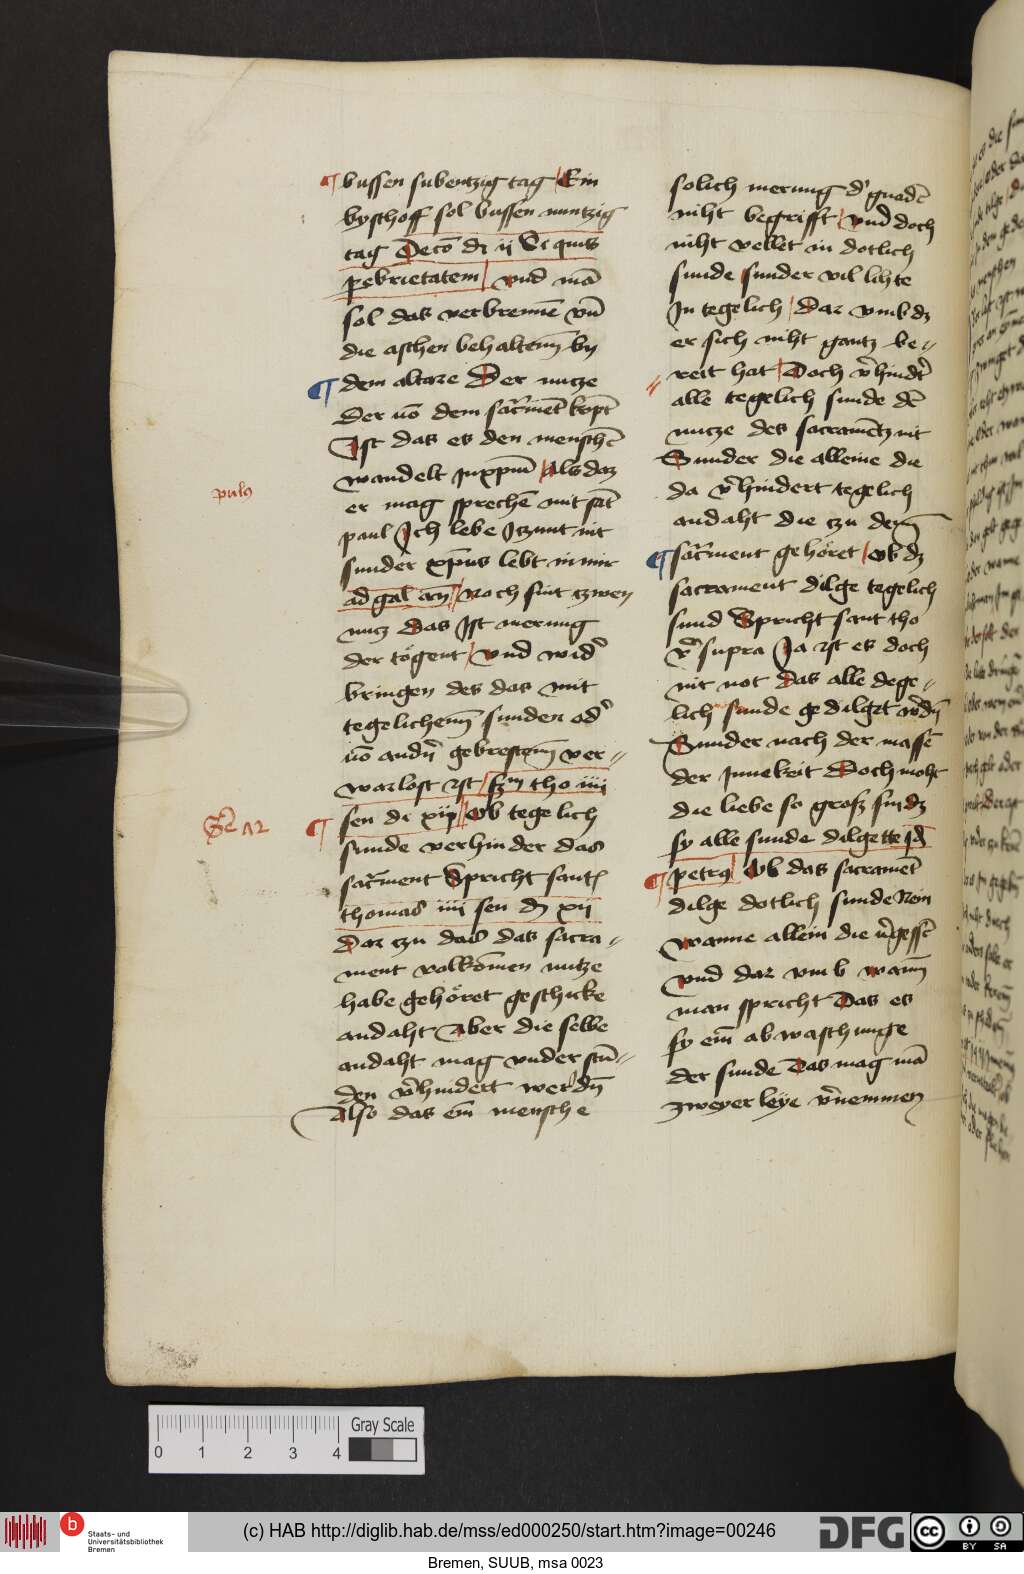 ¶ bussen subentzig tag Ein
byschoff sol bussen nuntzig
tag Deco͂ di ij Si quis
pebrietatem vnd ma͂
sol das verbrenne͂ vn͂
die aschen behaltenn by
¶ dem altare Der nutze
Der vo͂ dem sac͂ment kopt
Ist das es den mensche͂
wandelt In xp͂m Als daz
er mag spreche͂ mit sat
paul Ich lebe Itzunt nit
sunder xp͂us lebt in mir
ad gal Noch sint zwen
nucz Das Ist merung
der tögent vnd wid'
bringen des das mit
tegelichenn sunden od'
vo͂ and'n gebrestenn ver-
warlost ist sz͂m tho iiii
¶ sen di xij Ob tegelich
sunde verhinder das
sac͂ment Spricht sant
thomas iiii sen d xij
Dar czu das das sacra-
ment volkomen nutze
habe gehöret geschicke
andaht Aber die selbe
andaht mag vnder stu͂-
den v'hindert werd'n
Also das ein mensche
solich merung d' gnade͂
niht begrifft vnd doch
niht vellet in dotlich
sunde sunder vil lihte
In tegelich Dar vmb dz
er sich niht gantz be-
reit hat Doch v'hind't
alle tegelich sunde de͂
nucze des sacramentz nit
Sunder die alleine die
da v'hindert tegelich
andaht die czu dem
¶ sac͂ment gehöret Ob dz
sacrament dilge tegelich
sund Spricht sant tho
supra Ja ist es doch
nit not Das alle dege-
lich sunde gedilget w'd'n
Sunder nach der masse͂
der Innekeit Doch moht
die liebe so grosz sin dz
sy alle sunde dilgette sd
¶ petrus Ob das sacramet
dilge dotlich sunde Nein
Wanne allein die v'gesse͂
vnd dar vmb wann
man spricht Das es
sy ein abwaschunge
der sunde Das mag ma͂
zweyerleye v'nemmen
paulus
0 1 2 3 4
Gray Scale
b Staats- und
Universitätsbibliothek
Bremen
(c) HAB http://diglib.hab.de/mss/ed000250/start.htm?image=00246
DFG
cc BY SA
Bremen, SUUB, msa 0023